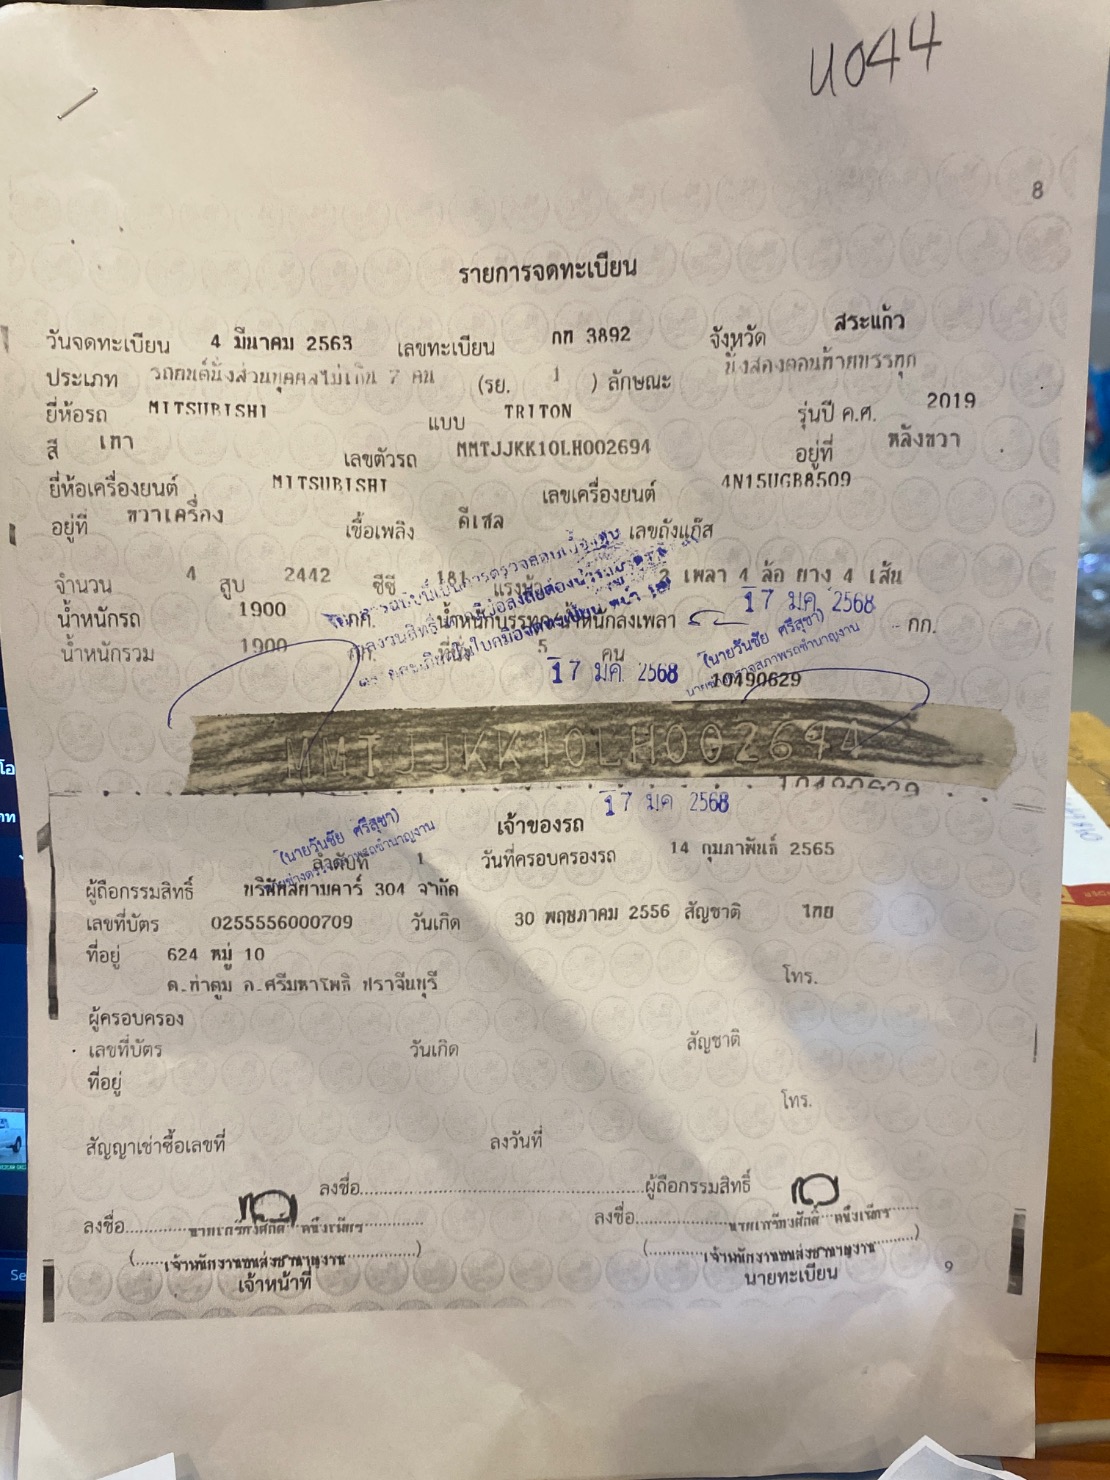 น044
8
รายการจดทะเบียน
วันจดทะเบียน 4 มีนาคม 2563 เลขทะเบียน กท 3892 จังหวัด สระแก้ว
ประเภท รถยนต์นั่งส่วนบุคคลไม่เกิน 7 คน (รย. 1 ) ลักษณะ นั่งสองตอนท้ายบรรทุก
ยี่ห้อรถ MITSUBISHI แบบ TRITON รุ่นปี ค.ศ. 2019
สี เทา เลขตัวรถ MMTJJKK10LH002694 อยู่ที่ หลังขวา
ยี่ห้อเครื่องยนต์ MITSUBISHI เลขเครื่องยนต์ 4N15UGB8509
อยู่ที่ ขวาเครื่อง เชื้อเพลิง ดีเซล เลขถังแก๊ส
จำนวน 4 สูบ 2442 ซีซี 181 แรงม้า 2 เพลา 4 ล้อ ยาง 4 เส้น
น้ำหนักรถ 1900 กก. น้ำหนักบรรทุก/น้ำหนักลงเพลา กก.
17 มค 2568
น้ำหนักรวม 1900 กก. ที่นั่ง 5 คน
(นายวันชัย ศรีสุชา)
นายช่างตรวจสภาพรถชำนาญงาน
17 มค. 2568
10490629
MMTJJKK10LH002694
10490629
17 มค 2568
เจ้าของรถ
(นายวันชัย ศรีสุชา)
นายช่างตรวจสภาพรถชำนาญงาน
ลำดับที่ 1 วันที่ครอบครองรถ 14 กุมภาพันธ์ 2565
ผู้ถือกรรมสิทธิ์ บริษัทสยามคาร์ 304 จำกัด
เลขที่บัตร 0255556000709 วันเกิด 30 พฤษภาคม 2556 สัญชาติ ไทย
ที่อยู่ 624 หมู่ 10
ต.ท่าตูม อ.ศรีมหาโพธิ ปราจีนบุรี โทร.
ผู้ครอบครอง
เลขที่บัตร วันเกิด สัญชาติ
ที่อยู่
โทร.
สัญญาเช่าซื้อเลขที่ ลงวันที่
ลงชื่อ ผู้ถือกรรมสิทธิ์
ลงชื่อ ลงชื่อ
(เจ้าพนักงานขนส่งชำนาญงาน) (เจ้าพนักงานขนส่งชำนาญงาน)
เจ้าหน้าที่ นายทะเบียน
9